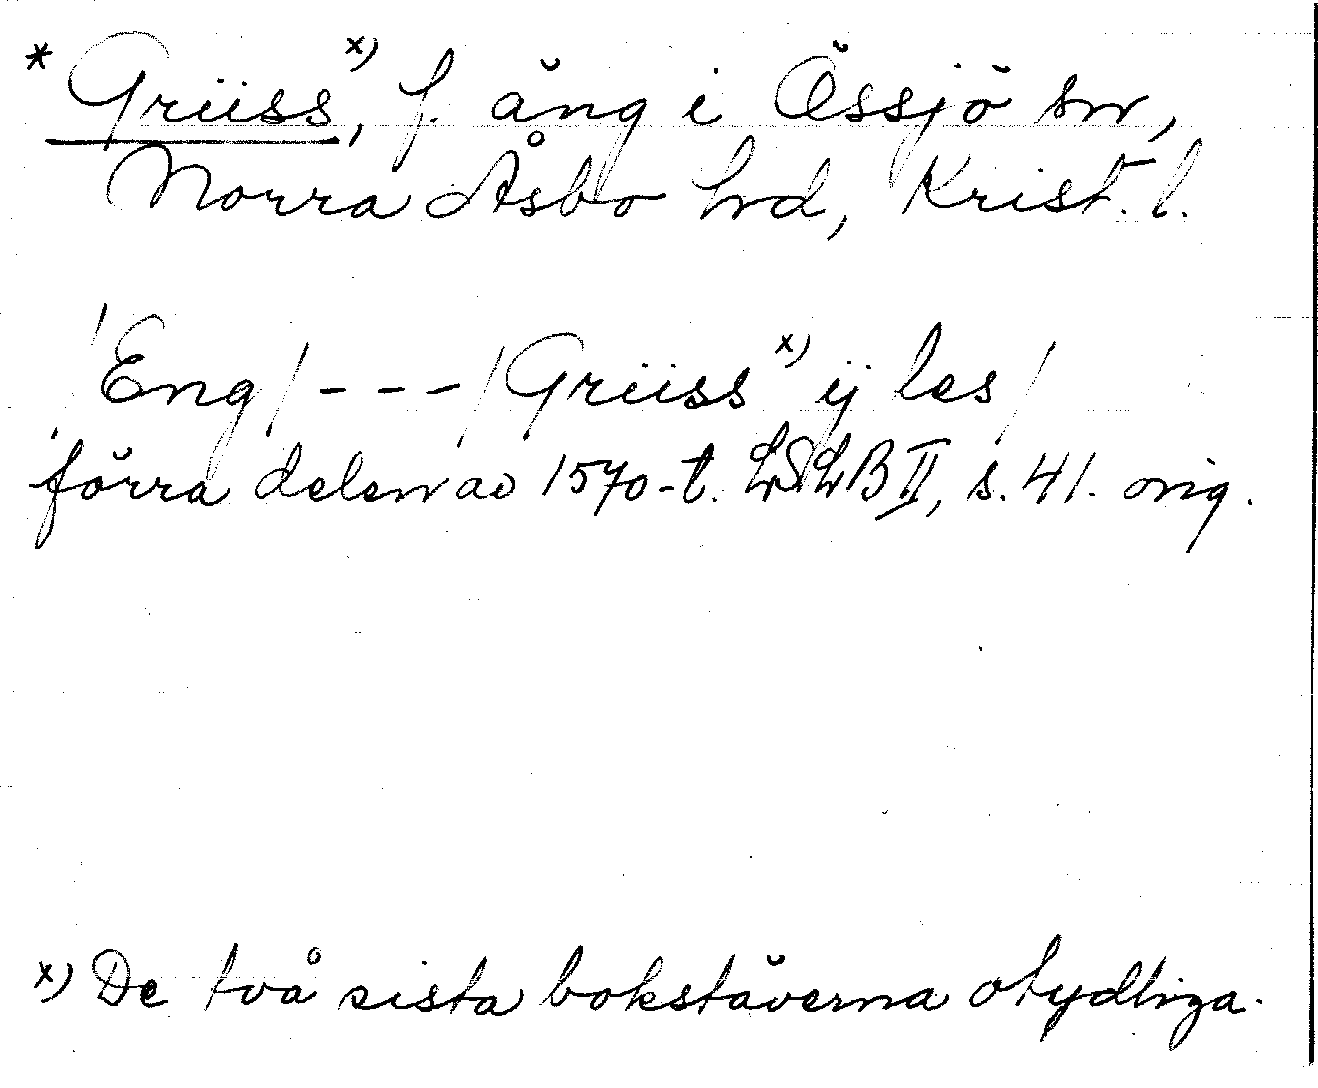 * Grüss ˣ⁾, f. äng i Össjö sn,
Norra Åsbo hrd, Krist. l.
'Eng/---/Grüss ˣ⁾ ij les/
förra delen av 1570-t. LSLB II, s. 41. orig.
x) De två sista bokstäverna otydliga.